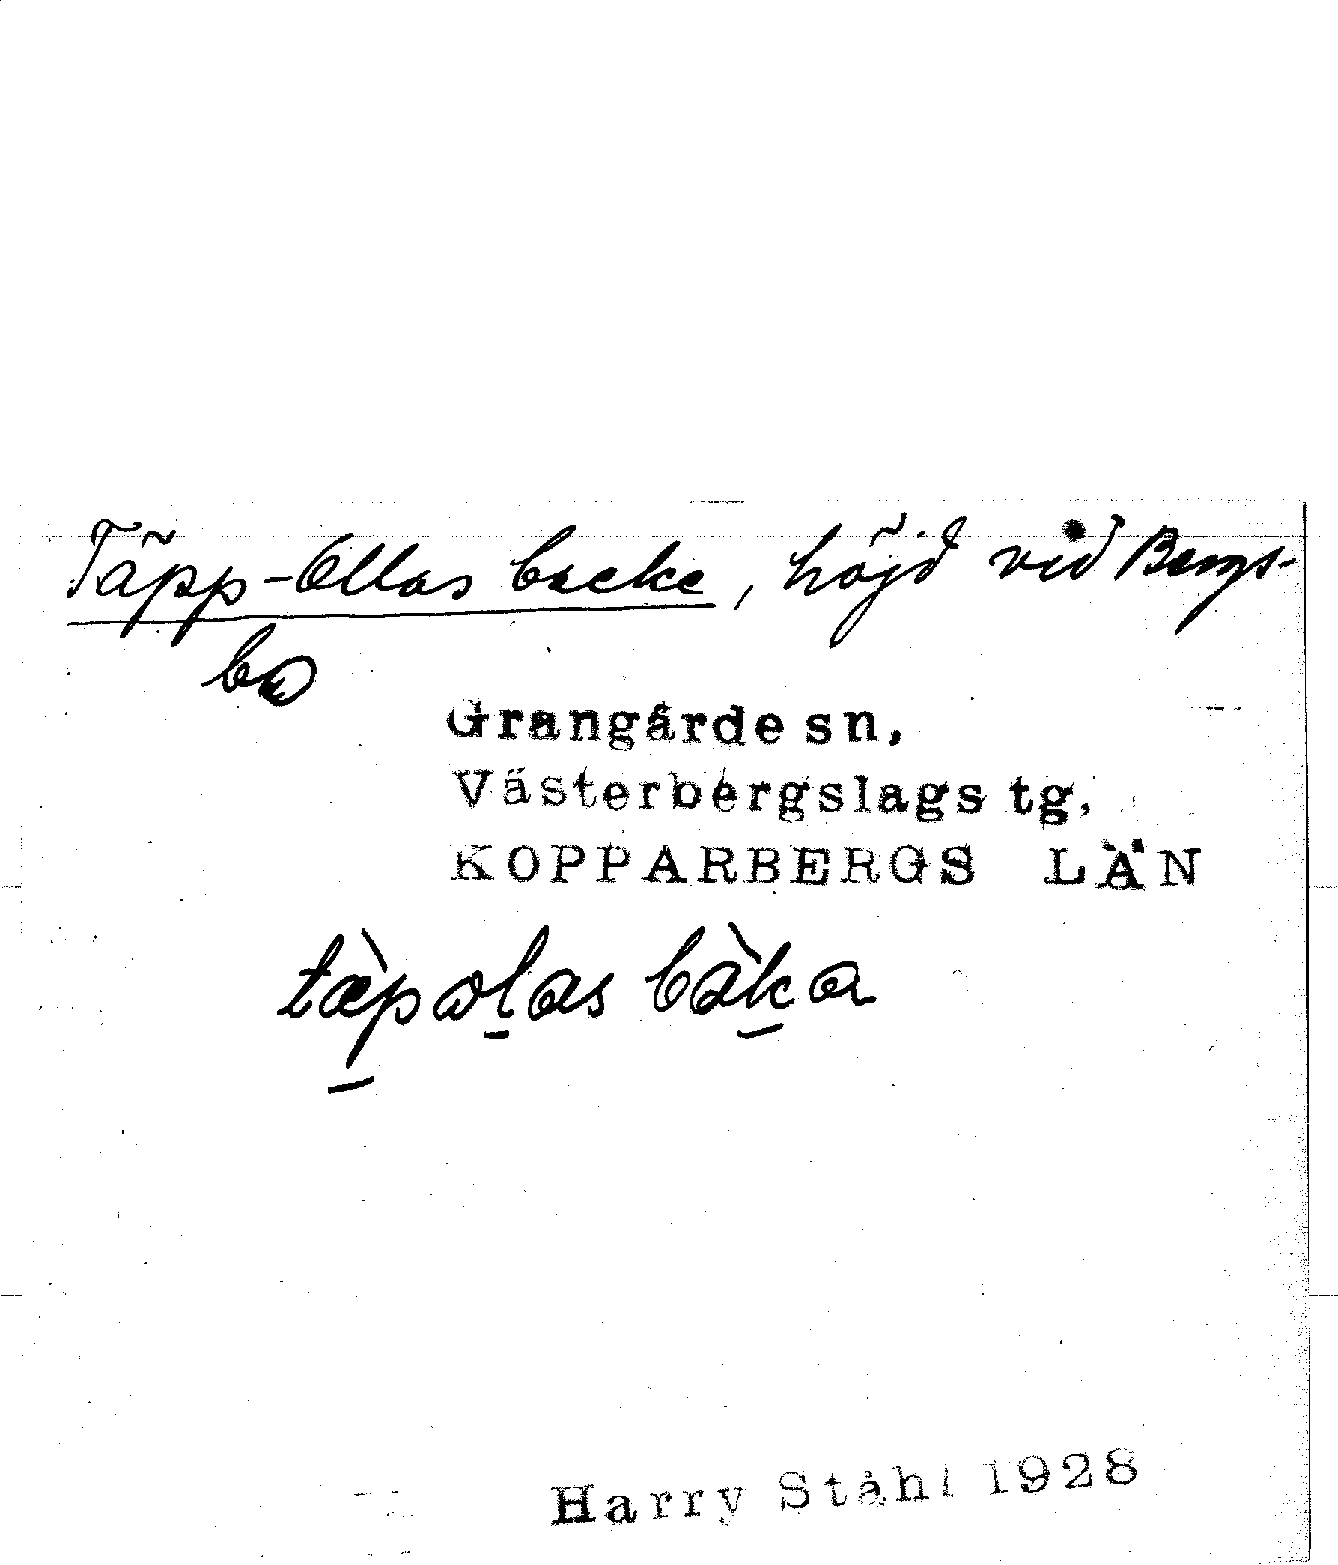 Täpp-Ollas backe, höjd vid Bergs-
bo
Grangärde sn,
Västerbergslags tg,
KOPPARBERGS LÄN
tæ̀pɷlas bàka
Harry Ståhl 1928